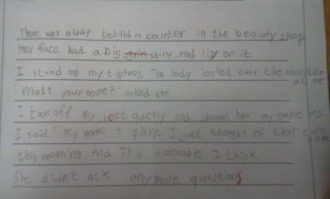 There was a lady behind a counter in the beauty shop
Her face had a big shiny, red lip on it.
I stood up my tiptoes The lady looked over the counter
at me
"What's your name?" asked she
I took off my quickly and showed her my
I said "My name is pinky. I just thought of that
this morning And it is adorable I think.
She didn't ask any more questions